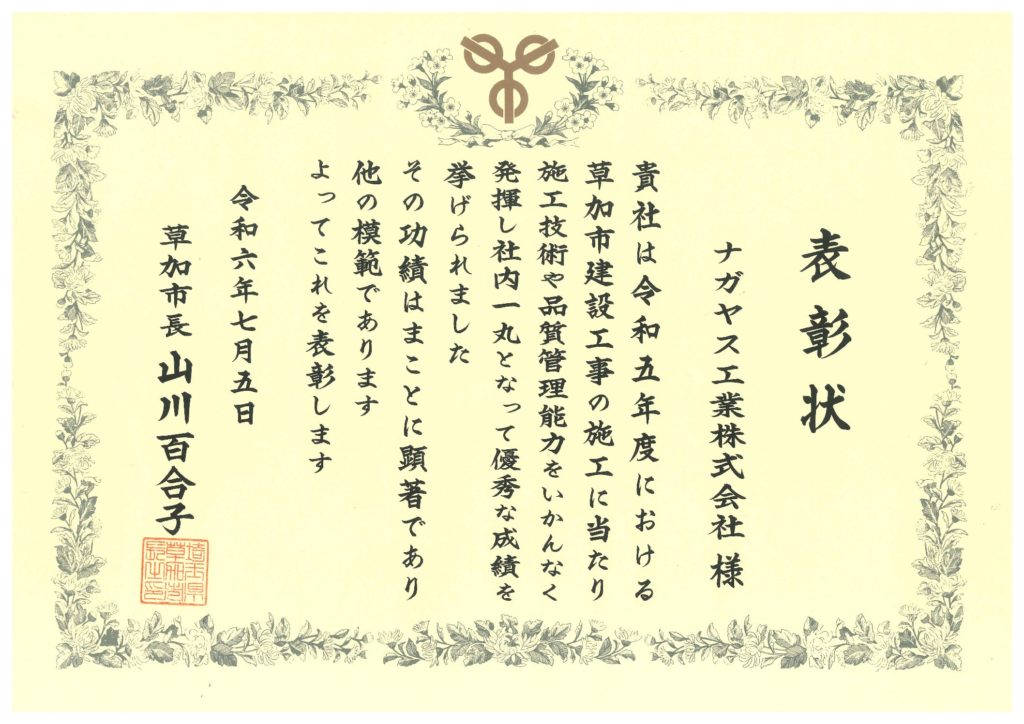 表彰状
ナガヤス工業株式会社 様
貴社は令和五年度における
草加市建設工事の施工に当たり
施工技術や品質管理能力をいかんなく
発揮し社内一丸となって優秀な成績を
挙げられました
その功績はまことに顕著であり
他の模範であります
よってこれを表彰します
令和六年七月五日
草加市長 山川百合子
埼玉県
草加市
長之印